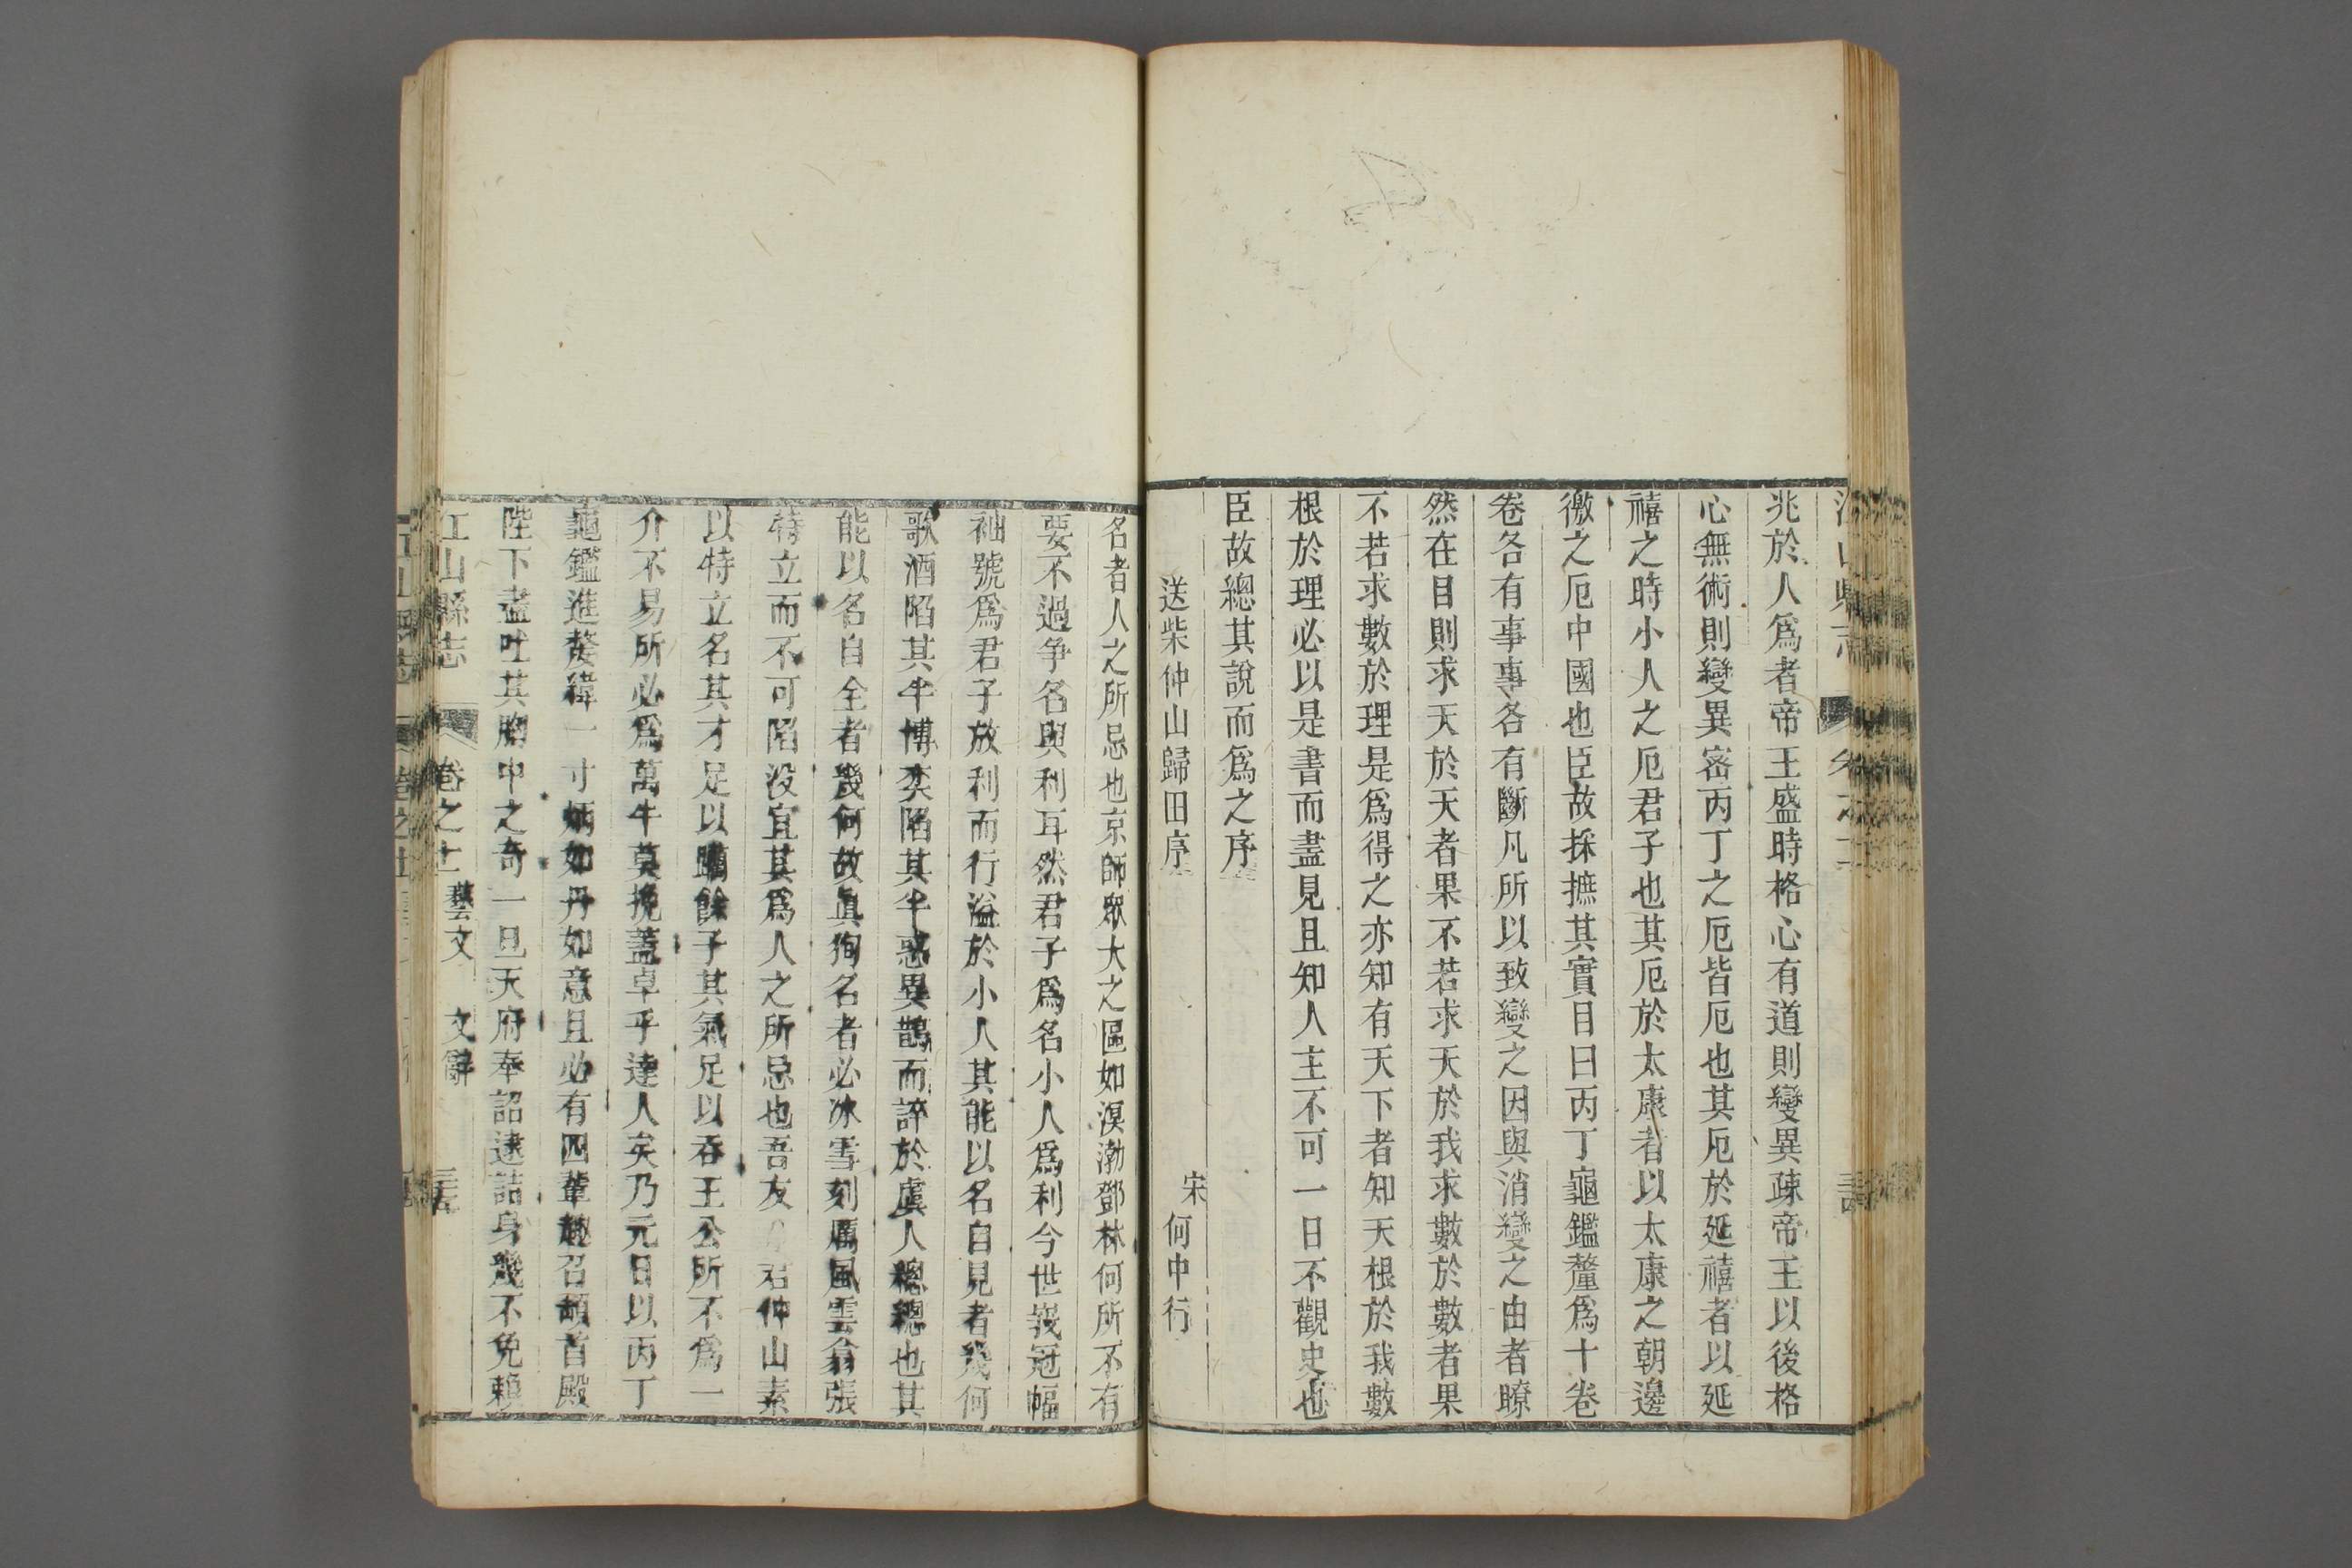 兆於人爲者帝王盛時格心有道則變異疎帝王以後格
心無術則變異密丙丁之厄皆厄也其厄於延禧者以延
禧之時小人之厄君子也其厄於太康者以太康之朝邊
徼之厄中國也臣故採摭其實目曰丙丁龜鑑釐爲十卷
卷各有事事各有斷凡所以致變之因與消變之由者瞭
然在目則求天於天者果不若求天於我求數於數者果
不若求數於理是爲得之亦知有天下者知天根於我數
根於理必以是書而盡見且知人主不可一日不觀史也
臣故總其說而爲之序
送柴仲山歸田序 宋何中行
名者人之所忌也京師衆大之區如溟渤鄧林何所不有
要不過争名與利耳然君子爲名小人爲利今世峩冠幅
袖號爲君子放利而行溢於小人其能以名自見者幾何
歌酒陷其半博奕陷其半惑異鵲而誶於虞人總總也其
能以名自全者幾何故眞狥名者必冰雪刻厲風雲翕張
特立而不可陷没宜其爲人之所忌也吾友 君仲山素
以特立名其才足以 餘子其氣足以吞王公所不爲一
介不易所必爲萬牛莫挽蓋卓乎達人矣乃元日以丙丁
龜鑑進嫠緯一寸炳如丹如意且必有四輩趣召頓首殿
陛下盡吐其胸中之奇一旦天府奉詔逮詰身幾不免賴
江山縣志 卷之十一 藝文 文辭 三十五